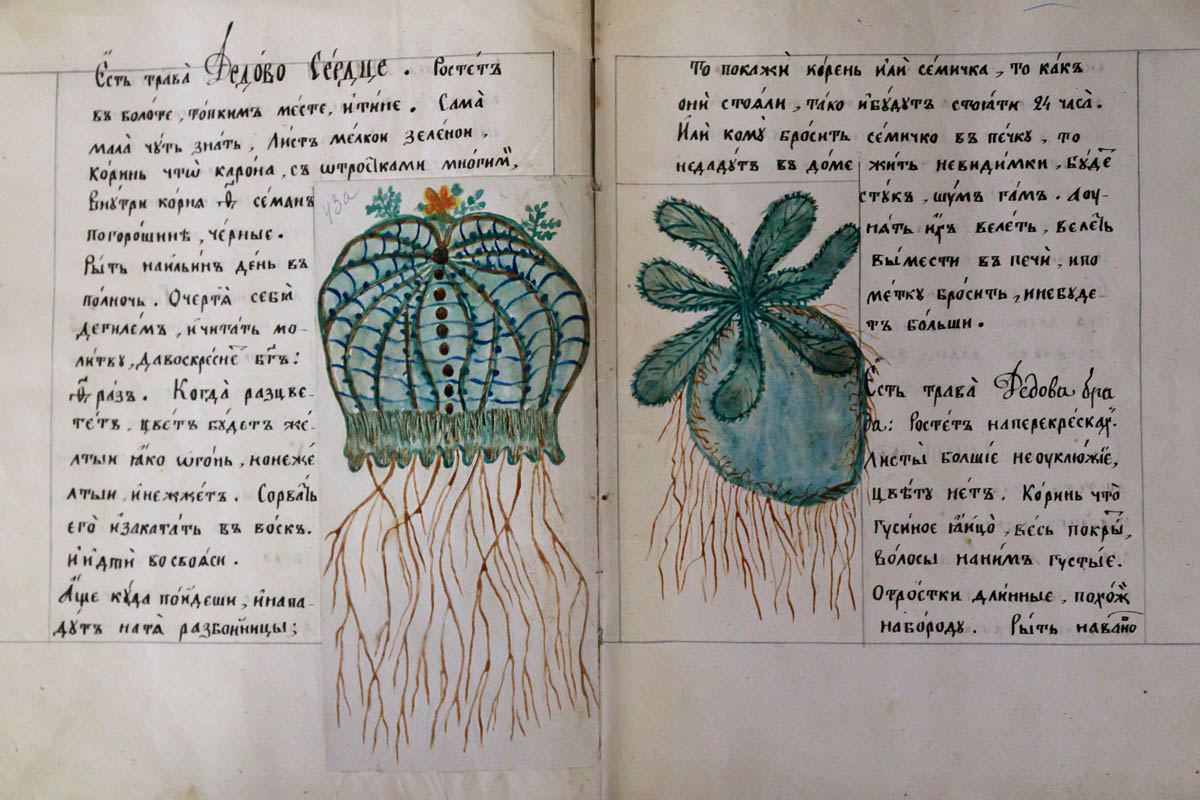 Є҆сть трава̀ Дедо́во Се́рдце. Росте́тъ
въ боло́те, то́пкимъ ме́сте, и҆ти́не. Сама̀
мала̀ чу́ть зна́ть, Ли́стъ ме́лкои зеле́нои,
Ко́ринь что̀ѡ каро́на, съ ѡтро́стками мно́гим,
Вну́три ко́рня ѿ се́мянъ
погоро́шинѣ, че́рные.
Ры́ть наильи́н де́нь въ
по́лночь. О҆черта̀ себѧ̀
деги́лем, и҆чита́ть мо-
ли́тву, Давоскре́сне бг҃ъ:
ѿ ра́зъ. Когда̀ разцве-
те́тъ. цве́тъ бу́детъ же́-
лтыи ꙗ҆́ко ѡ҆го́нь, но не же́
лтыи и҆нежже́тъ. Сорва́ть
его̀ и҆заката́ть въ во́скъ.
и҆ идтѝ восвоѧси.
А҆́ще куда̀ по́йдеши, и҆напа-
ду́тъ натѧ̀ разбо́иницы;
То покажѝ ко́рень и҆лѝ се́мичка, то ка́къ
онѝ стоя́ли, та́ко и҆бу́дутъ стоꙗ́ти 24 часа̀.
И҆лѝ кому̀ бро́сить се́мичко въ пе́чку, то
недаду́тъ въ до́ме жи́ть неви́димки, бу́де
сту́къ, шу́мъ га́мъ. А оу-
на́ть и҆́хъ веле́ть, веле́ть
вы́мести въ печѝ, и҆по
ме́тку бро́сить, и҆небу́де-
тъ бо́льши.
Є҆сть трава̀ Де́дова бра
да̀: Росте́тъ наперекре́сках.
Ли́сты болшіе неоуклю́жіе,
цве́ту не́тъ. Ко́ринь что̀
гуси́ное ꙗ҆ицо̀, ве́сь покры́,
во́лосы нани́мъ густы́е.
О҆тро́стки дли́нные, похо́ж
набороду. Ры́ть нава́но